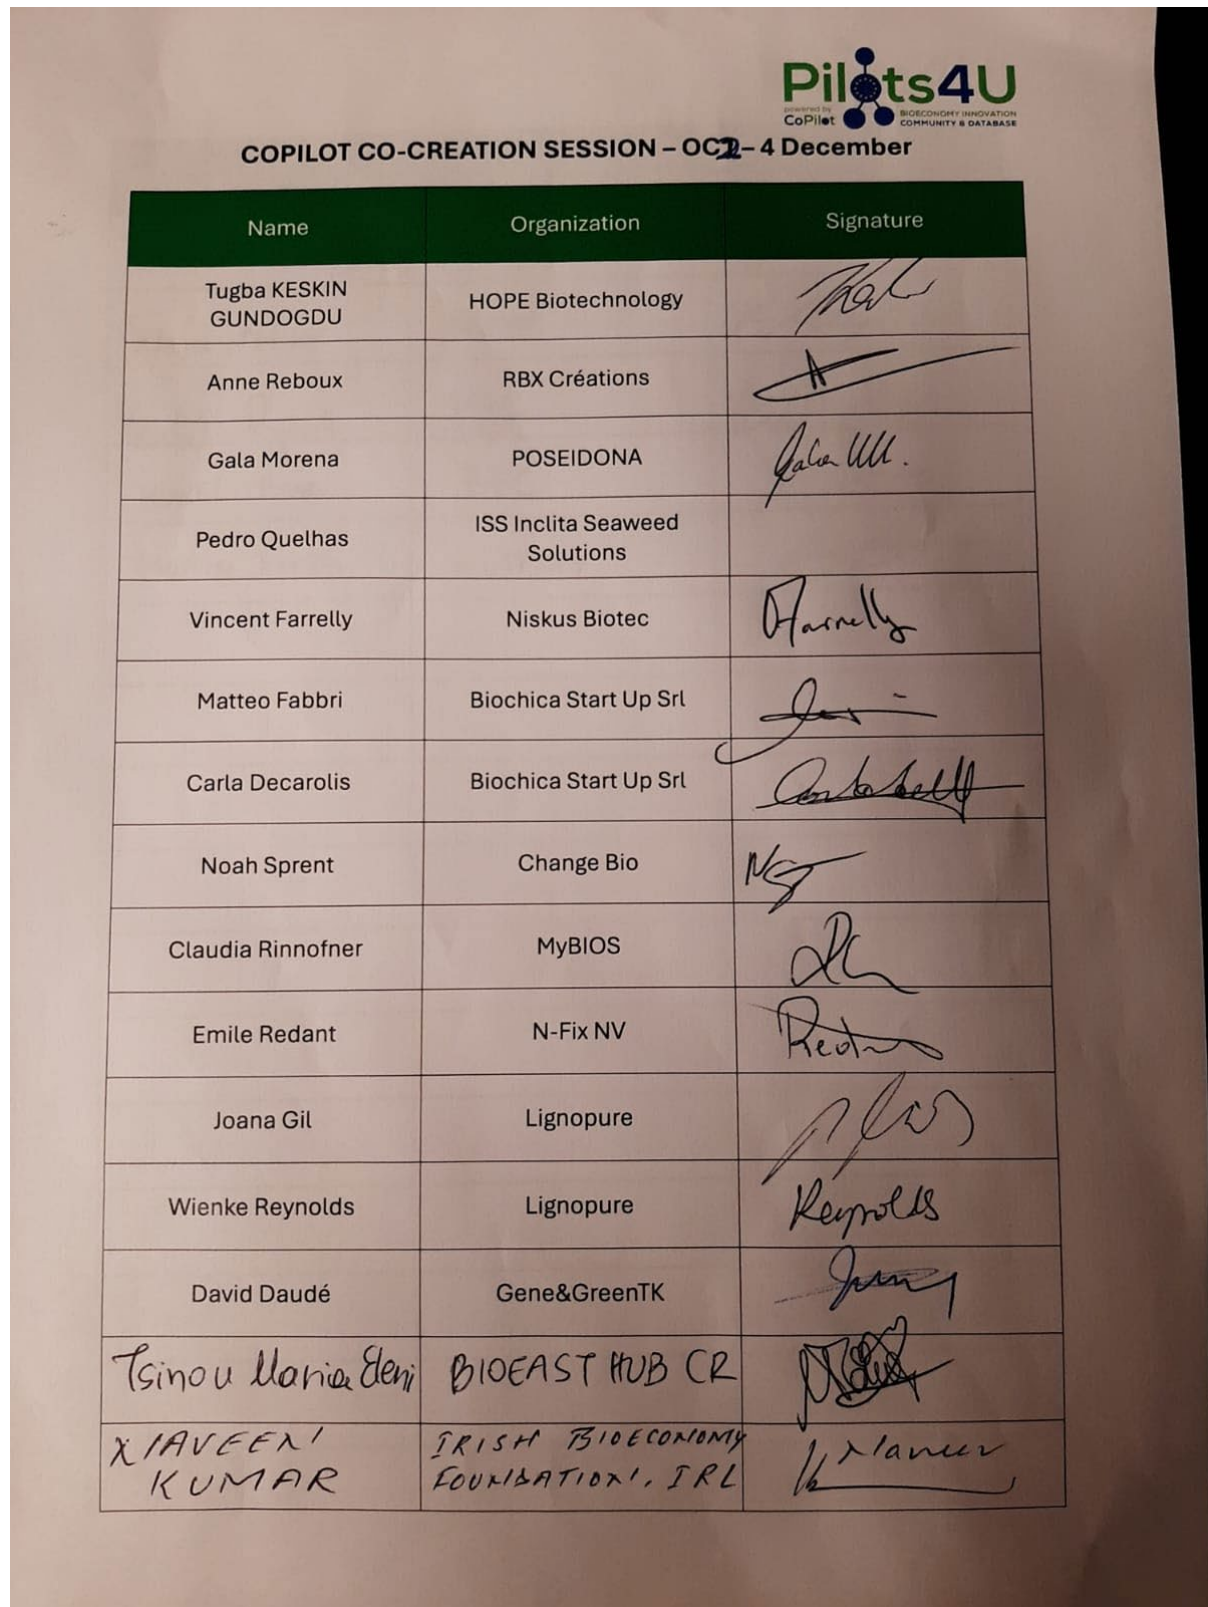 Pilots4U
powered by
CoPilot
BIOECONOMY INNOVATION
COMMUNITY & DATABASE
COPILOT CO-CREATION SESSION – OC2 – 4 December
Name Organization Signature
Tugba KESKIN
GUNDOGDU
HOPE Biotechnology
Anne Reboux RBX Créations
Gala Morena POSEIDONA
Pedro Quelhas
ISS Inclita Seaweed
Solutions
Vincent Farrelly Niskus Biotec Farrelly
Matteo Fabbri Biochica Start Up Srl
Carla Decarolis Biochica Start Up Srl
Noah Sprent Change Bio
Claudia Rinnofner MyBIOS
Emile Redant N-Fix NV
Joana Gil Lignopure
Wienke Reynolds Lignopure Reynolds
David Daudé Gene&GreenTK
Tsinou Maria Eleni BIOEAST HUB CR
NAVEEN
KUMAR
IRISH BIOECONOMY
FOUNDATION, IRL